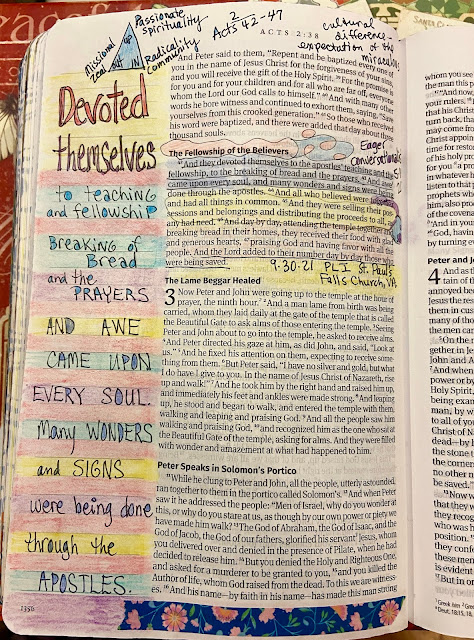 ACTS 2:38
Passionate
Spirituality
Missional
Zeal
UP
IN
Radical
Community
2
Acts 42-47
cultural
difference -
expectation of the
miraculous
Devoted
themselves
to teaching
and fellowship
Breaking of
Bread
and the
PRAYERS
AND AWE
CAME UPON
EVERY SOUL.
Many WONDERS
and SIGNS
were being done
through the
APOSTLES.
1350
And Peter said to them, “Repent and be baptized every one of
you in the name of Jesus Christ for the forgiveness of your sins,
and you will receive the gift of the Holy Spirit. 39 For the promise is
for you and for your children and for all who are far off, everyone
whom the Lord our God calls to himself.” 40 And with many other
words he bore witness and continued to exhort them, saying, “Save
yourselves from this crooked generation.” 41 So those who received
his word were baptized, and there were added that day about three
thousand souls.
The Fellowship of the Believers
42 And they devoted themselves to the apostles' teaching and the
fellowship, to the breaking of bread and the prayers. 43 And awe
came upon every soul, and many wonders and signs were being
done through the apostles. 44 And all who believed were together
and had all things in common. 45 And they were selling their pos-
sessions and belongings and distributing the proceeds to all, as
any had need. 46 And day by day, attending the temple together and
breaking bread in their homes, they received their food with glad
and generous hearts, 47 praising God and having favor with all the
people. And the Lord added to their number day by day those who
were being saved.
Eager
conversational
9-30-21 PLI St. Paul's
Falls Church, VA
The Lame Beggar Healed
3 Now Peter and John were going up to the temple at the hour of
prayer, the ninth hour. 2 And a man lame from birth was being
carried, whom they laid daily at the gate of the temple that is called
the Beautiful Gate to ask alms of those entering the temple. 3 Seeing
Peter and John about to go into the temple, he asked to receive alms.
4 And Peter directed his gaze at him, as did John, and said, “Look at
us.” 5 And he fixed his attention on them, expecting to receive some-
thing from them. 6 But Peter said, “I have no silver and gold, but what
I do have I give to you. In the name of Jesus Christ of Nazareth, rise
up and walk!” 7 And he took him by the right hand and raised him up,
and immediately his feet and ankles were made strong. 8 And leaping
up, he stood and began to walk, and entered the temple with them,
walking and leaping and praising God. 9 And all the people saw him
walking and praising God, 10 and recognized him as the one who sat at
the Beautiful Gate of the temple, asking for alms. And they were filled
with wonder and amazement at what had happened to him.
Peter Speaks in Solomon's Portico
11 While he clung to Peter and John, all the people, utterly astounded,
ran together to them in the portico called Solomon's. 12 And when Peter
saw it he addressed the people: “Men of Israel, why do you wonder at
this, or why do you stare at us, as though by our own power or piety we
have made him walk? 13 The God of Abraham, the God of Isaac, and the
God of Jacob, the God of our fathers, glorified his servant Jesus, whom
you delivered over and denied in the presence of Pilate, when he had
decided to release him. 14 But you denied the Holy and Righteous One,
and asked for a murderer to be granted to you, 15 and you killed the
Author of life, whom God raised from the dead. To this we are witness-
es. 16 And his name—by faith in his name—has made this man strong